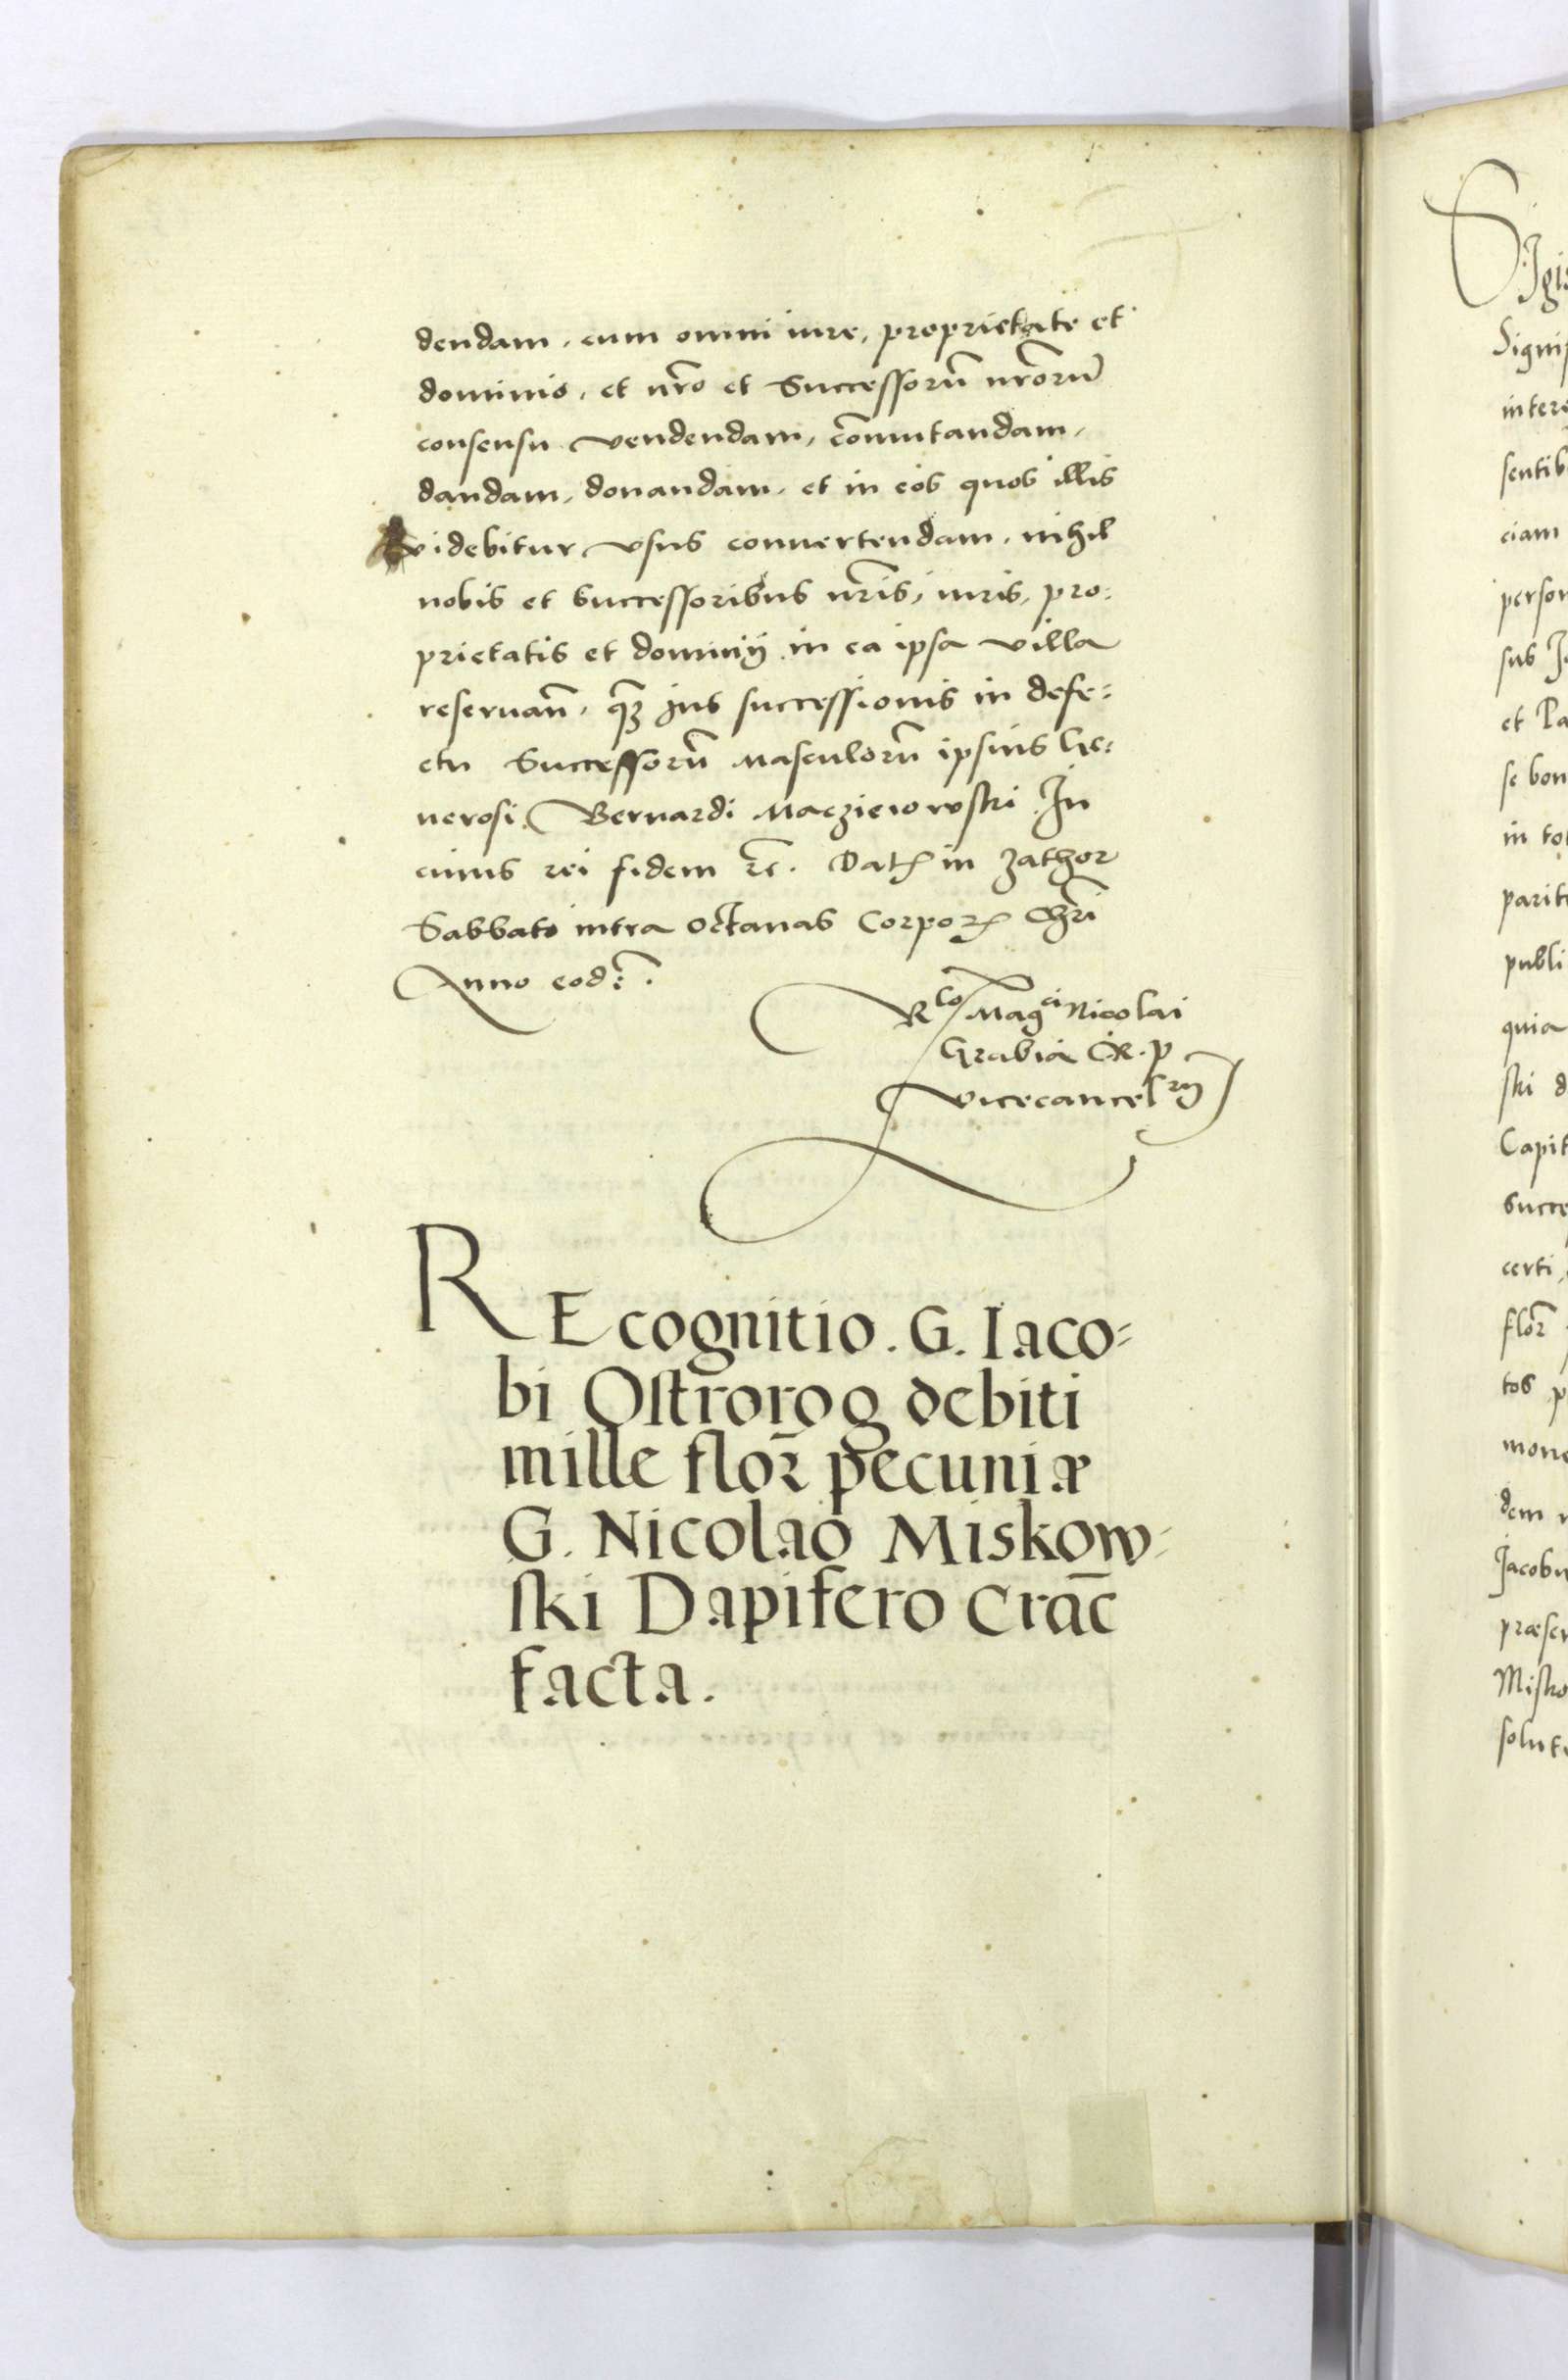 dendam, cum omni iure, proprietate et
dominio, et nr̃o et Successorũ nr̃orũ
consensu vendendam, cõmutandam,
dandam, donandam, et in eos quos illis
videbitur vsus conuertendam, nihil
nobis et successoribus nr̃is, iuris, pro:
prietatis et dominij in ea ipsa villa
reseruañ, ius successionis in defe:
ctu Successorũ Masculorũ ipsius Ge:
nerosi Bernardi Maczieiowski In
cuius rei fidem ꝛc. Datꝭ in Zathor
Sabbato intra octauas Corporꝭ Chr̃i
Anno eod:
Rlo Magci Nicolai
Grabia C.R.P
Vicecancelrij
REcognitio. G. Iaco=
bi Ostrorog debiti
mille flor̃ pecuniæ
G. Nicolao Miskow=
ski Dapifero Crac̃
facta.
Sigis
Signi
inter
sentib
ciam
person
sus
et Pa
se bon
in to
parit
publi
quia
ski d
Capit
succe
certi,
flor̃
tos p
mone
dem
Jacobu
præsen
Misko
solut